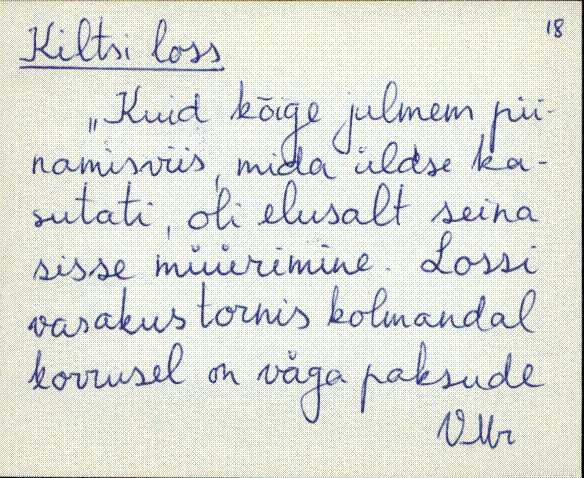 18
Kiltsi loss
„Kuid kõige julmem pii-
namisviis, mida üldse ka-
sutati, oli elusalt seina
sisse müürimine. Lossi
vasakus tornis kolmandal
korrusel on väga paksude
VMr